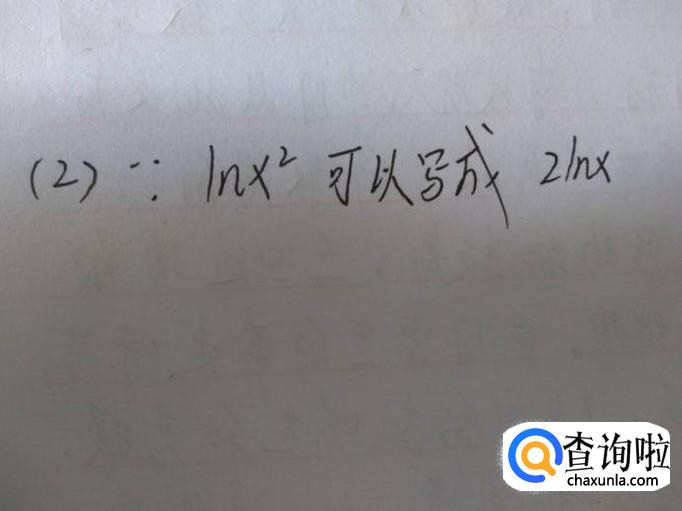 (2) ∵ lnx² 可以写成 2lnx
查询啦
chaxunla.com